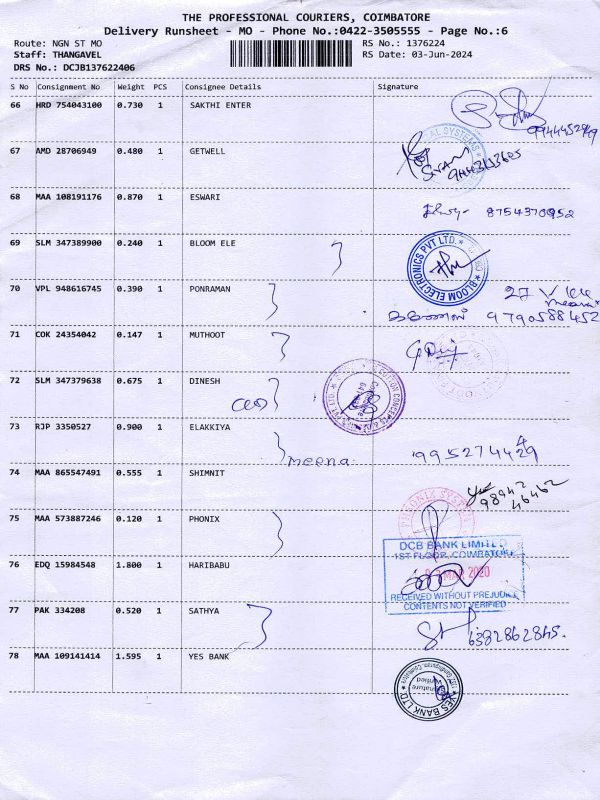 THE PROFESSIONAL COURIERS, COIMBATORE
Delivery Runsheet - MO - Phone No.:0422-3505555 - Page No.:6
Route: NGN ST MO RS No.: 1376224
Staff: THANGAVEL RS Date: 03-Jun-2024
DRS No.: DCJB137622406
S No Consignment No Weight PCS Consignee Details Signature
66 HRD 754043100 0.730 1 SAKTHI ENTER
67 AMD 28706949 0.480 1 GETWELL
68 MAA 108191176 0.870 1 ESWARI 8754370952
69 SLM 347389900 0.240 1 BLOOM ELE BLOOM ELECTRONICS PVT LTD.
70 VPL 948616745 0.390 1 PONRAMAN
9790588452
71 COK 24354042 0.147 1 MUTHOOT
72 SLM 347379638 0.675 1 DINESH
73 RJP 3350527 0.900 1 ELAKKIYA
meena
74 MAA 865547491 0.555 1 SHIMNIT
98942
46462
75 MAA 573887246 0.120 1 PHONIX PHEONIX SYSTEMS
DCB BANK LIMITED
1ST FLOOR, COIMBATORE
76 EDQ 15984548 1.800 1 HARIBABU MAR 2020
RECEIVED WITHOUT PREJUDICE
CONTENTS NOT VERIFIED
77 PAK 334208 0.520 1 SATHYA
6382862845.
78 MAA 109141414 1.595 1 YES BANK
Signature
Verified
YES BANK LTD